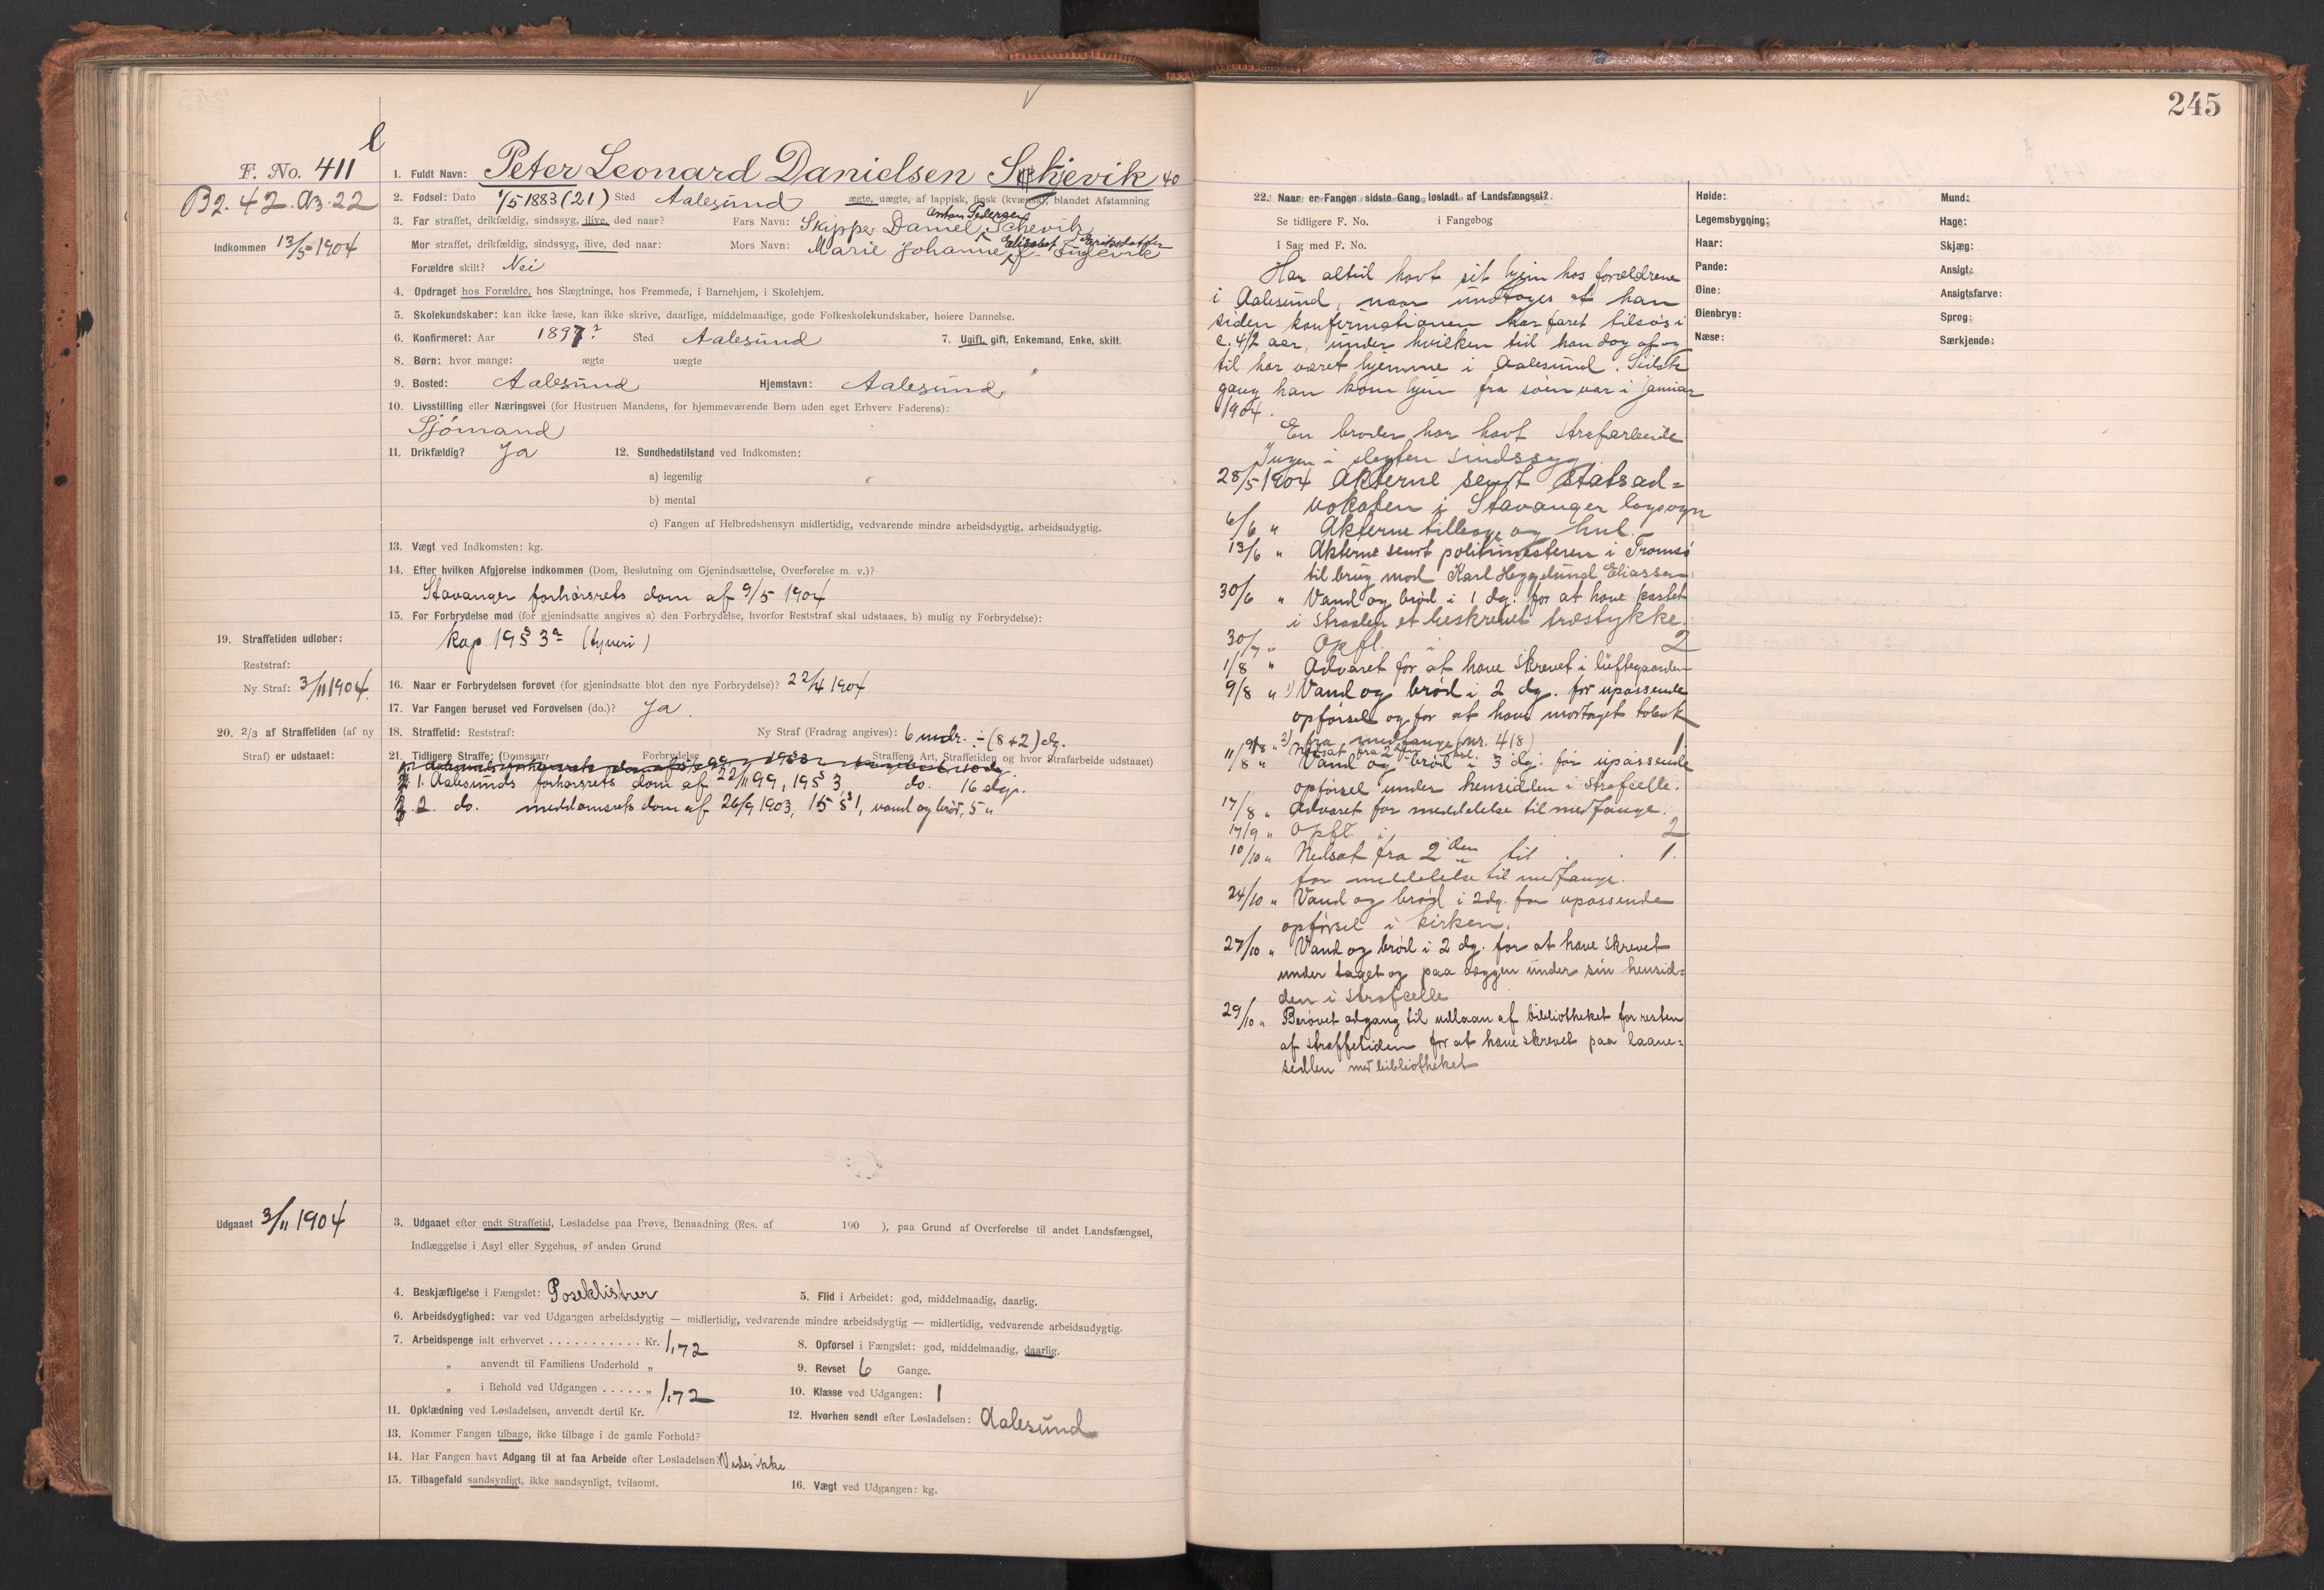 245
F. No. 411
B2. 42. A3. 22
Indkommen 13/5 1904
1. Fuldt Navn: Peter Leonard Danielsen Schjevik 40
2. Fødsel: Dato 1/5 1883 (21) Sted Aalesund ægte, uægte, af lappisk, finsk (kvænsk), blandet Afstamning
3. Far straffet, drikfældig, sindssyg, ilive, død naar? Fars Navn: Skipper Daniel Anton Pedersen Schevik
Mor straffet, drikfældig, sindssyg, ilive, død naar: Mors Navn: Marie Johanne Elisabet Eriksdatter
Forældre skilt? Nei
4. Opdraget hos Forældre, hos Slægtninge, hos Fremmede, i Barnehjem, i Skolehjem.
5. Skolekundskaber: kan ikke læse, kan ikke skrive, daarlige, middelmaadige, gode Folkeskolekundskaber, høiere Dannelse.
6. Konfirmeret: Aar 1897? Sted Aalesund 7. Ugift, gift, Enkemand, Enke, skilt.
8. Børn: hvor mange: ægte uægte
9. Bosted: Aalesund Hjemstavn: Aalesund
10. Livsstilling eller Næringsvei (for Hustruen Mandens, for hjemmeværende Børn uden eget Erhverv Faderens):
Sjømand
11. Drikfældig? Ja 12. Sundhedstilstand ved Indkomsten:
a) legemlig
b) mental
c) Fangen af Helbredshensyn midlertidig, vedvarende mindre arbeidsdygtig, arbeidsudygtig.
13. Vægt ved Indkomsten: kg.
14. Efter hvilken Afgjørelse indkommen (Dom, Beslutning om Gjenindsættelse, Overførelse m. v.)?
Stavanger forhørsrets dom af 9/5 1904
15. For Forbrydelse mod (for gjenindsatte angives a) den Forbrydelse, hvorfor Reststraf skal udstaaes, b) mulig ny Forbrydelse):
kap 19 § 3a (tyveri)
19. Straffetiden udløber:
Reststraf:
Ny Straf: 3/11 1904.
16. Naar er Forbrydelsen forøvet (for gjenindsatte blot den nye Forbrydelse)? 22/4 1904
17. Var Fangen beruset ved Forøvelsen (do.)? Ja.
20. 2/3 af Straffetiden (af ny
Straf) er udstaaet:
18. Straffetid: Reststraf: Ny Straf (Fradrag angives): 6 mdr. ÷ (8+2) dg.
21. Tidligere Straffe: (Domsaar, Forbrydelse, Straffens Art, Straffetiden og hvor Strafarbeide udstaaet)
1. Aalesunds forhørsrets dom af 22/11 99, 19 § 3 do. 16 dgr.
2. do. meddomsrets dom af 26/9 1903, 15 § 1, vand og brød, 5 "
Udgaaet 3/11 1904
3. Udgaaet efter endt Straffetid, Løsladelse paa Prøve, Benaadning (Res. af 190 ), paa Grund af Overførelse til andet Landsfængsel,
Indlæggelse i Asyl eller Sygehus, af anden Grund
4. Beskjæftigelse i Fængslet: Poseklistrer 5. Flid i Arbeidet: god, middelmaadig, daarlig.
6. Arbeidsdygtighed: var ved Udgangen arbeidsdygtig — midlertidig, vedvarende mindre arbeidsdygtig — midlertidig, vedvarende arbeidsudygtig.
7. Arbeidspenge ialt erhvervet . . . . . . . . . . . Kr. 1,72 8. Opførsel i Fængslet: god, middelmaadig, daarlig.
" anvendt til Familiens Underhold " 9. Revset 6 Gange.
" i Behold ved Udgangen . . . . . " 1,72 10. Klasse ved Udgangen: 1
11. Opklædning ved Løsladelsen, anvendt dertil Kr. 12. Hvorhen sendt efter Løsladelsen: Aalesund
13. Kommer Fangen tilbage, ikke tilbage i de gamle Forhold?
14. Har Fangen havt Adgang til at faa Arbeide efter Løsladelsen? Vides ikke
15. Tilbagefald sandsynligt, ikke sandsynligt, tvilsomt. 16. Vægt ved Udgangen: kg.
22. Naar er Fangen sidste Gang løsladt af Landsfængsel?
Se tidligere F. No. i Fangebog
I Sag med F. No.
Har altid havt sit hjem hos forældrene
i Aalesund, naar undtages at han
siden konfirmationen har faret tilsøs i
c. 4½ aar, under hvilken tid han dog af og
til har været hjemme i Aalesund. Sidste
gang han kom hjem fra søen var i januar
1904.
En broder har havt strafarbeide
Ingen i slegten sindssyg.
28/5 1904 Akterne sendt statsad=
vokaten i Stavanger lagsogn
6/6 " Akterne tilbage og hul.
13/6 " Akterne sendt politimesteren i Tromsø
til brug mod Karl Heggelund Eliassen
30/6 " Vand og brød i 1 dg. for at have kastet
i straalen et beskrevet træstykke.
30/7 " Opfl. i 2
1/8 " Advaret for at have skrevet i luftegaarden
9/8 " 1) Vand og brød i 2 dg. for upassende
opførsel og for at have modtaget tobak
fra medfange (nr. 418)
9/8 " 2) Nedsat fra 2den til 1.
11/8 " Vand og brød i 3 dg. for upassende
opførsel under hensidden i strafcelle.
17/8 " Advaret for meddelelse til medfange.
17/9 " Opfl. i 2
10/10 " Nedsat fra 2den til 1.
for meddelelse til medfange.
24/10 " Vand og brød i 2 dg. for upassende
opførsel i kirken.
27/10 " Vand og brød i 2 dg. for at have skrevet
under taget og paa væggen under sin hensid=
den i strafcelle
29/10 " Berøvet adgang til udlaan af bibliotheket for resten
af straffetiden for at have skrevet paa laane=
sedlen med bibliotheket
Høide:
Legemsbygning:
Haar:
Pande:
Øine:
Øienbryn:
Næse:
Mund:
Hage:
Skjæg:
Ansigt:
Ansigtsfarve:
Sprog:
Særkjende: